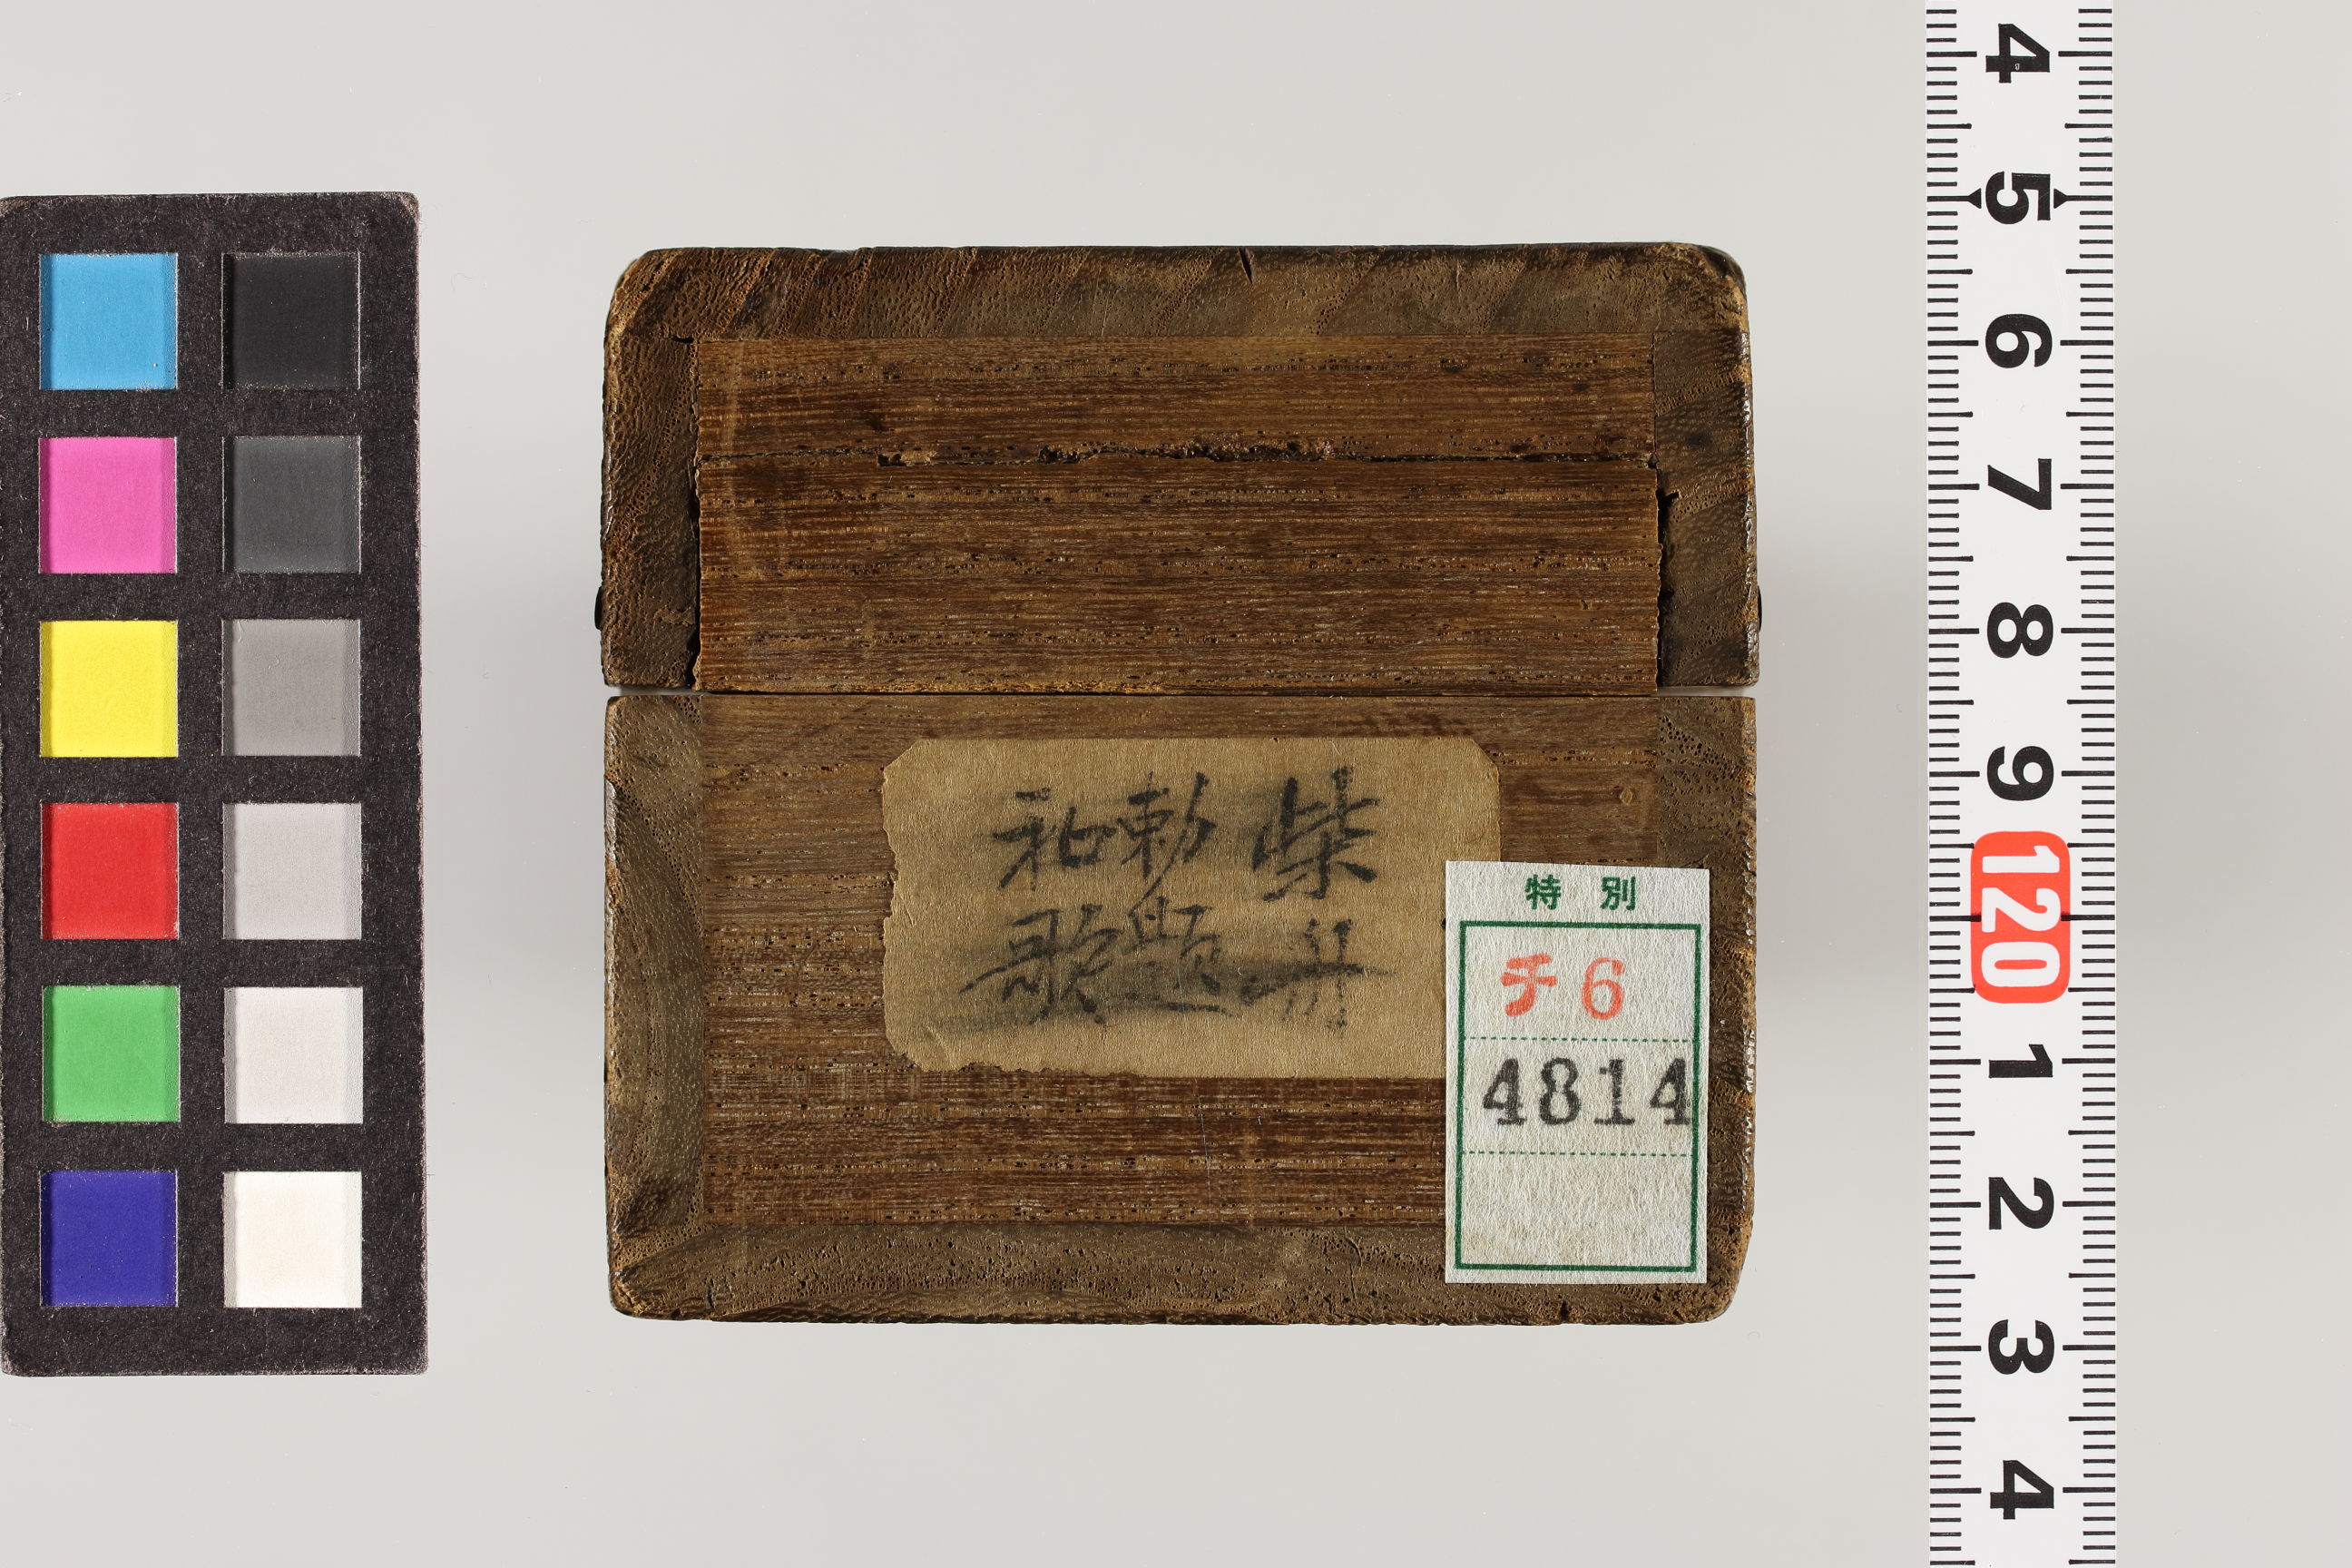 柴舟
勅題
和歌
特別
チ6
4814
4
5
6
7
8
9
120
1
2
3
4